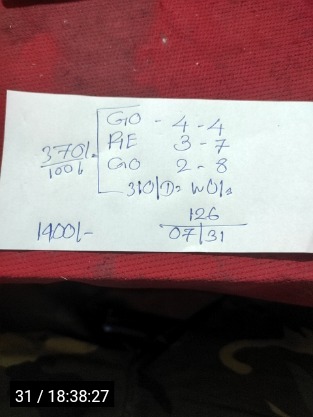 GO - 4 - 4
PIE 3 - 7
370/-
1006
GO 2 - 8
310/D=
1400/-
126
07/31
31 / 18:38:27